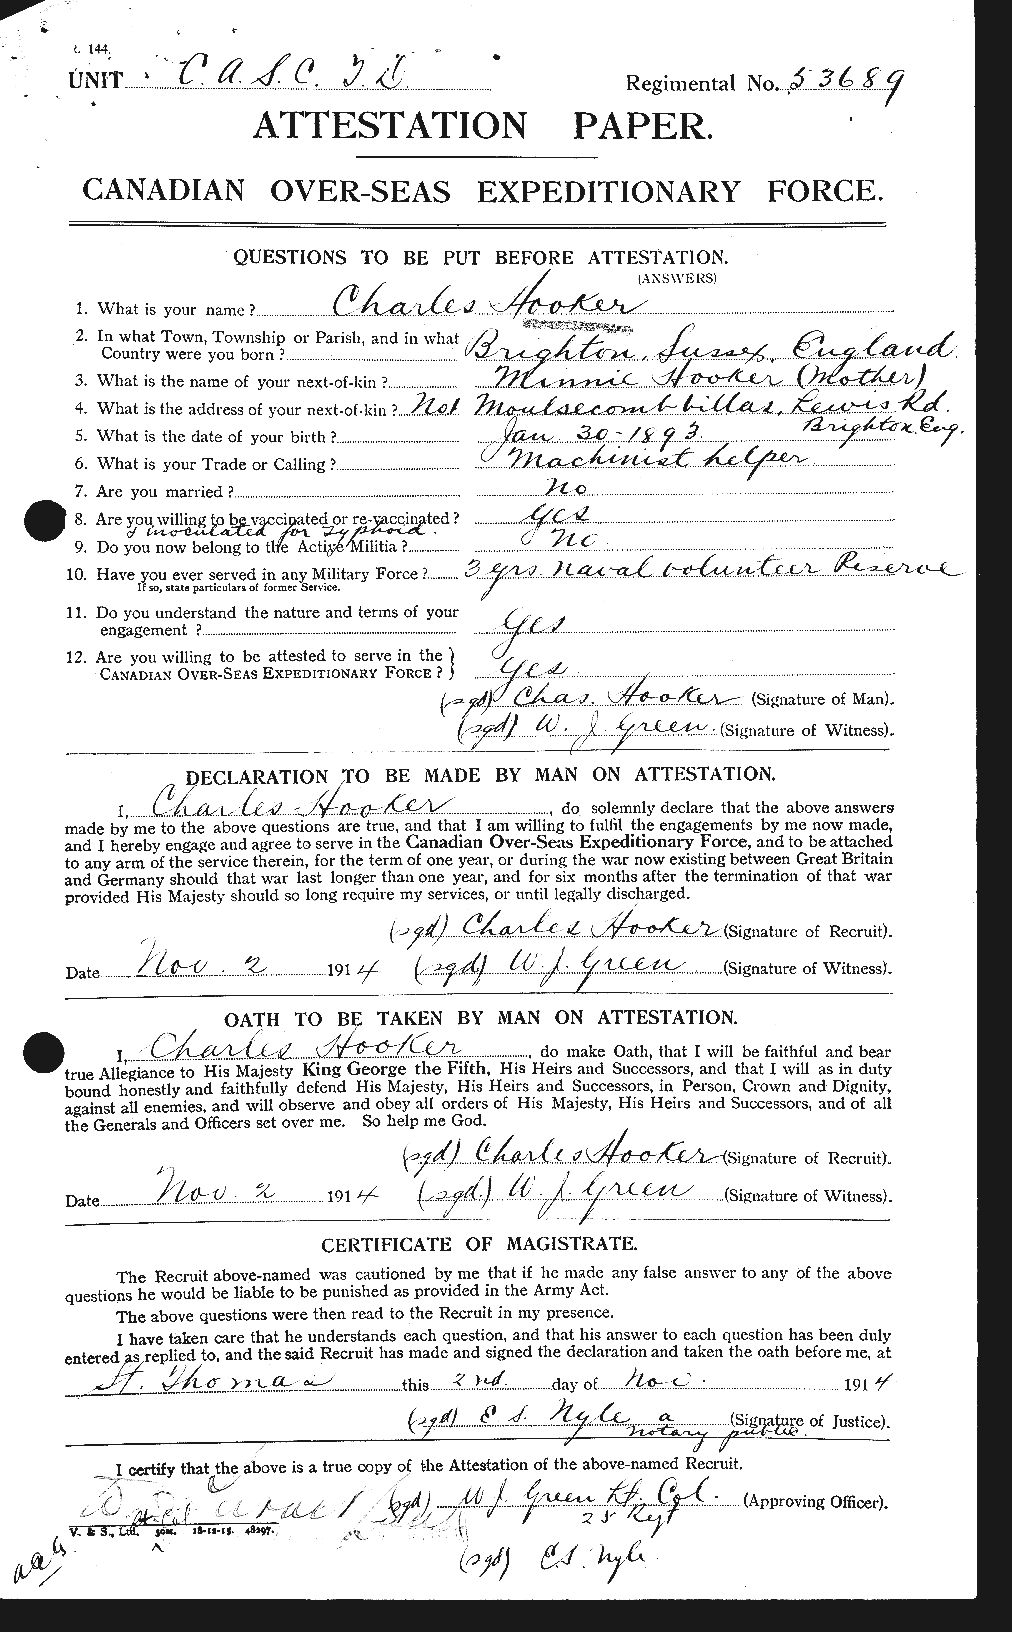 144.
UNIT C.A.S.C. T.D. Regimental No. 53689
ATTESTATION PAPER.
CANADIAN OVER-SEAS EXPEDITIONARY FORCE.
QUESTIONS TO BE PUT BEFORE ATTESTATION.
(ANSWERS)
1. What is your name? Charles Hooker
2. In what Town, Township or Parish, and in what
Country were you born? Brighton, Sussex, England
3. What is the name of your next-of-kin? Minnie Hooker (Mother)
4. What is the address of your next-of-kin? No1 Moulsecomb villas, Lewis Rd.
Brighton, Eng.
5. What is the date of your birth? Jan 30-1893
6. What is your Trade or Calling? Machinist helper
7. Are you married? No
8. Are you willing to be vaccinated or re-vaccinated? Yes
& inoculated for Typhoid.
9. Do you now belong to the Active Militia? No
10. Have you ever served in any Military Force? 3 yrs. Naval volunteer Reserve
If so, state particulars of former Service.
11. Do you understand the nature and terms of your
engagement? Yes
12. Are you willing to be attested to serve in the
CANADIAN OVER-SEAS EXPEDITIONARY FORCE? Yes
(sgd) Chas. Hooker (Signature of Man).
(sgd) W. J. Green (Signature of Witness).
DECLARATION TO BE MADE BY MAN ON ATTESTATION.
I, Charles Hooker, do solemnly declare that the above answers
made by me to the above questions are true, and that I am willing to fulfil the engagements by me now made,
and I hereby engage and agree to serve in the Canadian Over-Seas Expeditionary Force, and to be attached
to any arm of the service therein, for the term of one year, or during the war now existing between Great Britain
and Germany should that war last longer than one year, and for six months after the termination of that war
provided His Majesty should so long require my services, or until legally discharged.
(sgd) Charles Hooker (Signature of Recruit).
Date Nov. 2 1914 (sgd) W. J. Green (Signature of Witness).
OATH TO BE TAKEN BY MAN ON ATTESTATION.
I, Charles Hooker, do make Oath, that I will be faithful and bear
true Allegiance to His Majesty King George the Fifth, His Heirs and Successors, and that I will as in duty
bound honestly and faithfully defend His Majesty, His Heirs and Successors, in Person, Crown and Dignity,
against all enemies, and will observe and obey all orders of His Majesty, His Heirs and Successors, and of all
the Generals and Officers set over me. So help me God.
(sgd) Charles Hooker (Signature of Recruit).
Date Nov. 2 1914 (sgd.) W. J. Green (Signature of Witness).
CERTIFICATE OF MAGISTRATE.
The Recruit above-named was cautioned by me that if he made any false answer to any of the above
questions he would be liable to be punished as provided in the Army Act.
The above questions were then read to the Recruit in my presence.
I have taken care that he understands each question, and that his answer to each question has been duly
entered as replied to, and the said Recruit has made and signed the declaration and taken the oath before me, at
St. Thomas this 2nd. day of Nov. 1914
(sgd) E S. Nyle a (Signature of Justice).
notary public.
I certify that the above is a true copy of the Attestation of the above-named Recruit.
(sgd) W J. Green Lt. Col. (Approving Officer).
25 Regt
V. & S., Ltd. 50M. 18-12-15. 48297.
(sgd) E.S. Nyle.